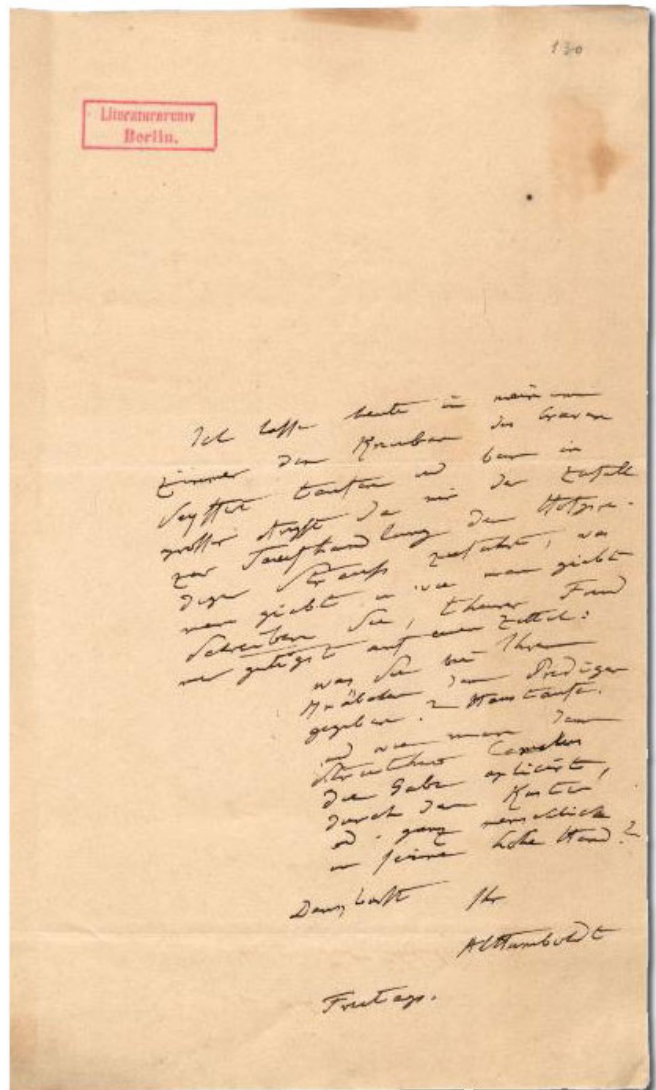 130
Literaturarchiv
Berlin.
Ich lasse heute in meinem
Zimmer den Knaben des
Seyffert taufen und bin in
großer Angst da mir der Zufall
zur Taufhandlung den Hofpre-
diger Strauss zuführt, was
man giebt u wie man giebt
Schreiben Sie, theurer Freund
mir gütigst auf einen Zettel:
was Sie bei Ihrem
Knäblein dem Prediger
gegeben? Haustaufe.
und wie man dem
die Gabe applicirt,
durch den Küster
od. ganz menschlich
in seine hohe Hand?
Dankbarst Ihr
AHumboldt
Freitags.